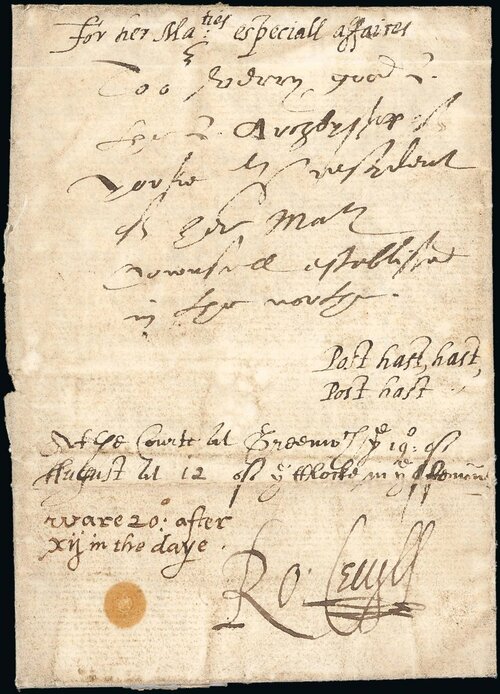 for her Ma:ties especiall affaires
Too my verry good L.
the L. Archbysshop of
Yorke L President
of her Mats
Counsell establisshed
in the northe.
Post hast, hast,
Post hast
At the Courte at Grenewch ye 19: of
August at 12 of ye Clocke in ye afternone
ware 20: after
xij in the daye.
Ro: Cecyll